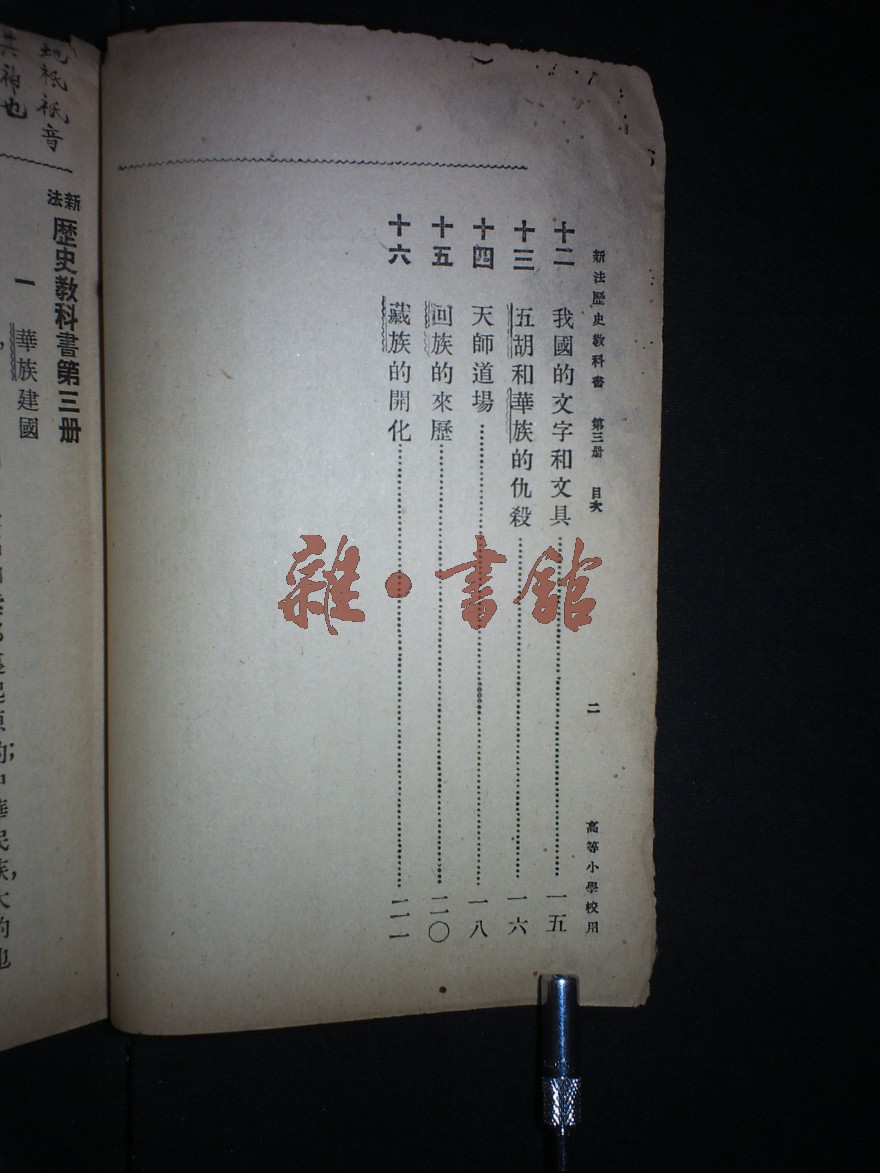 新法歷史教科書 第三册 目次 二 高等小學校用
十二 我國的文字和文具 一五
十三 五胡和華族的仇殺 一六
十四 天師道場 一八
十五 回族的來歷 二〇
十六 藏族的開化 二一
雜·書館
地祇祇音
神也
新法 歷史教科書第三册
一 華族建國
的中華民族,大約也